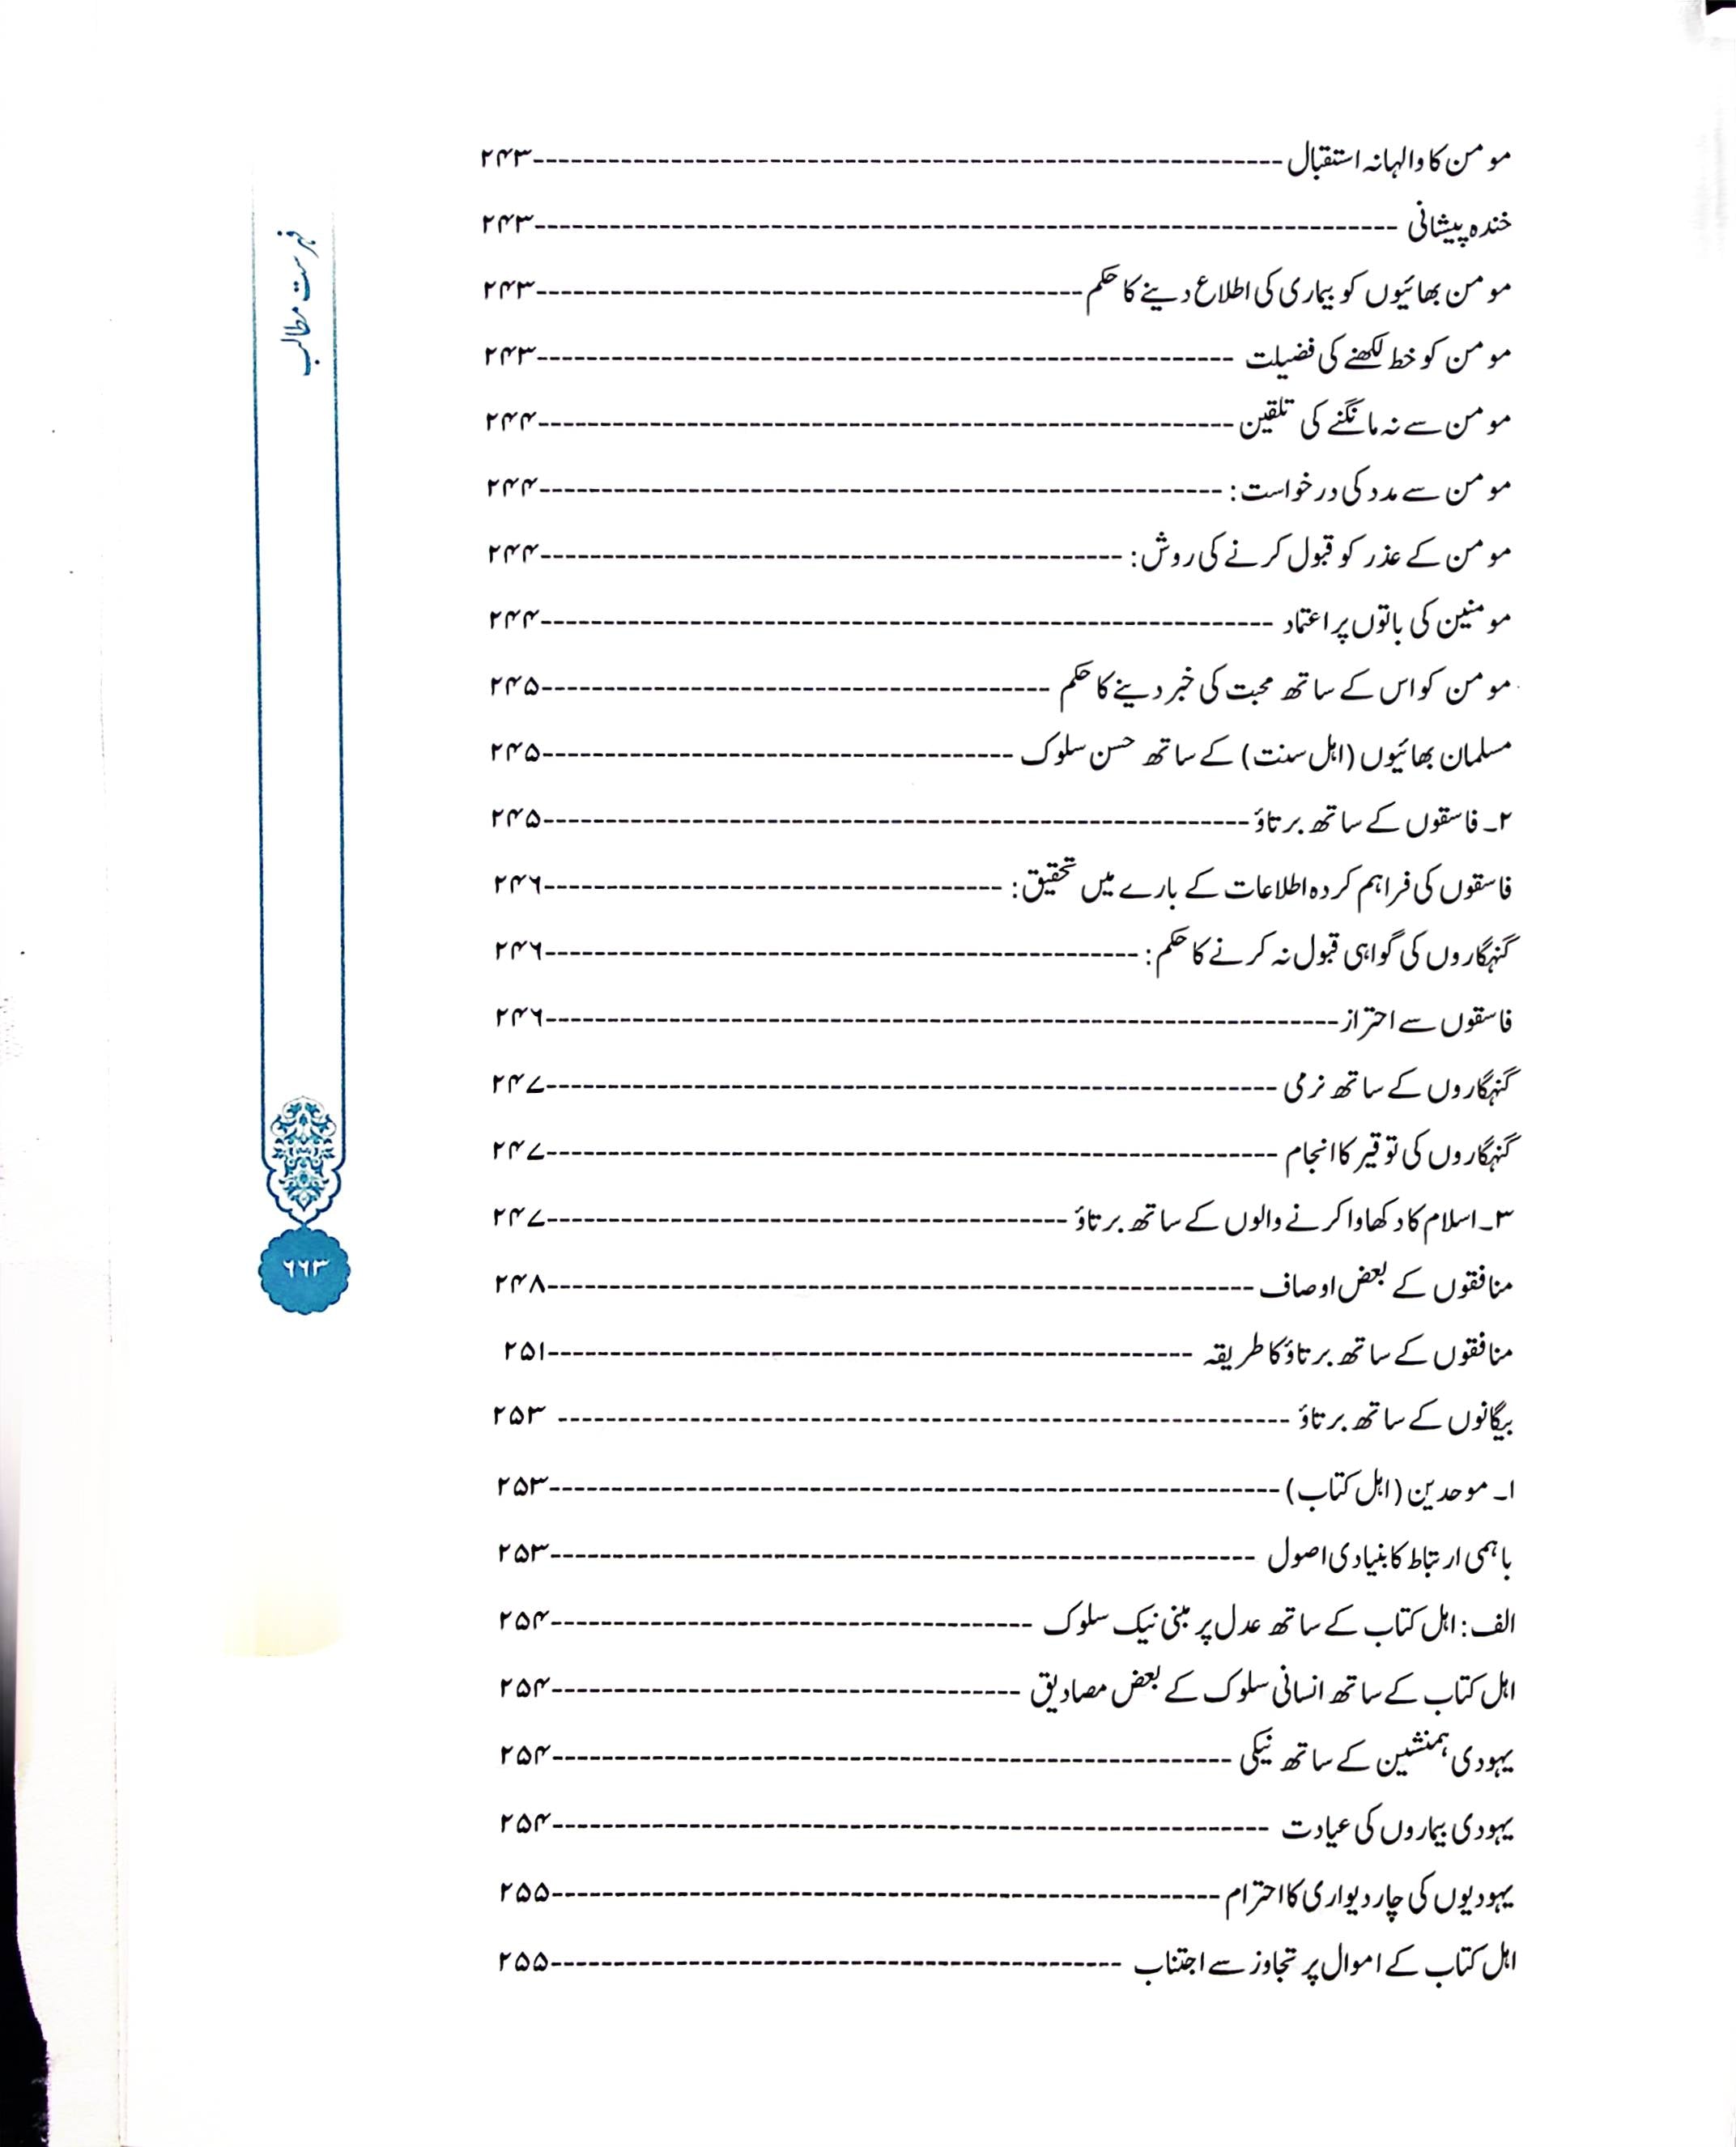 مومن کا والہانہ استقبال ------------------------------ ۲۴۳
خندہ پیشانی ------------------------------ ۲۴۳
مومن بھائیوں کو بیماری کی اطلاع دینے کا حکم ------------------------------ ۲۴۳
مومن کو خط لکھنے کی فضیلت ------------------------------ ۲۴۳
مومن سے نہ مانگنے کی تلقین ------------------------------ ۲۴۴
مومن سے مدد کی درخواست: ------------------------------ ۲۴۴
مومن کے عذر کو قبول کرنے کی روش: ------------------------------ ۲۴۴
مومنین کی باتوں پر اعتماد ------------------------------ ۲۴۴
مومن کو اس کے ساتھ محبت کی خبر دینے کا حکم ------------------------------ ۲۴۵
مسلمان بھائیوں (اہل سنت) کے ساتھ حسن سلوک ------------------------------ ۲۴۵
۲۔ فاسقوں کے ساتھ برتاؤ ------------------------------ ۲۴۵
فاسقوں کی فراہم کردہ اطلاعات کے بارے میں تحقیق: ------------------------------ ۲۴۶
گنہگاروں کی گواہی قبول نہ کرنے کا حکم: ------------------------------ ۲۴۶
فاسقوں سے احتراز ------------------------------ ۲۴۶
گنہگاروں کے ساتھ نرمی ------------------------------ ۲۴۷
گنہگاروں کی توقیر کا انجام ------------------------------ ۲۴۷
۳۔ اسلام کا دکھاوا کرنے والوں کے ساتھ برتاؤ ------------------------------ ۲۴۷
منافقوں کے بعض اوصاف ------------------------------ ۲۴۸
منافقوں کے ساتھ برتاؤ کا طریقہ ------------------------------ ۲۵۱
بیگانوں کے ساتھ برتاؤ ------------------------------ ۲۵۳
۱۔ موحدین (اہل کتاب) ------------------------------ ۲۵۳
باہمی ارتباط کا بنیادی اصول ------------------------------ ۲۵۳
الف: اہل کتاب کے ساتھ عدل پر مبنی نیک سلوک ------------------------------ ۲۵۴
اہل کتاب کے ساتھ انسانی سلوک کے بعض مصادیق ------------------------------ ۲۵۴
یہودی ہمنشین کے ساتھ نیکی ------------------------------ ۲۵۴
یہودی بیماروں کی عیادت ------------------------------ ۲۵۴
یہودیوں کی چار دیواری کا احترام ------------------------------ ۲۵۵
اہل کتاب کے اموال پر تجاوز سے اجتناب ------------------------------ ۲۵۵
فہرست مطالب
۶۶۳